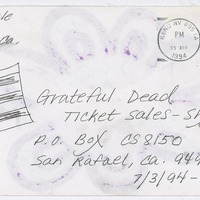 le
Ca.
RENO NV 895
PM
25 APR
1994
Grateful Dead
Ticket Sales - S
P.O. Box CS8150
San Rafael, Ca. 949
7/3/94 -